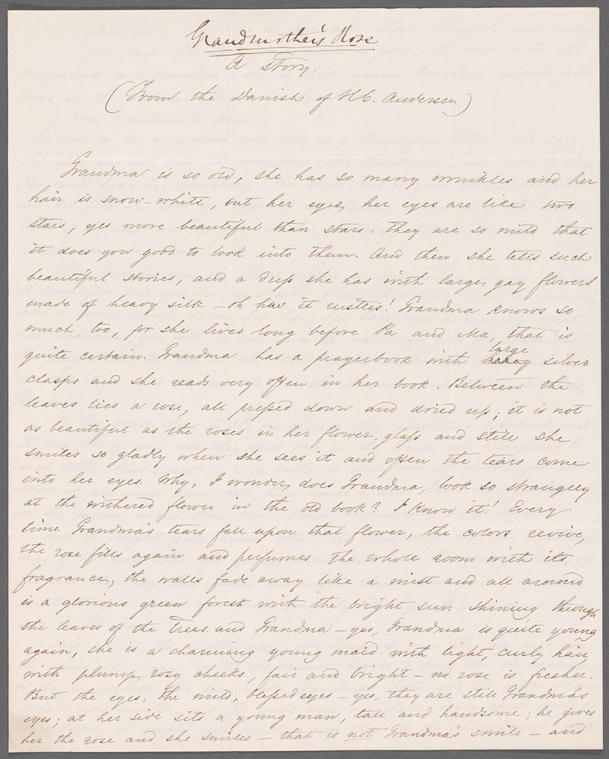 Grandmother's Rose
A Story
(From the Danish of H.C. Andersen)
Grandma is so old, she has so many wrinkles and her
hair is snow-white, but her eyes, her eyes are like two
stars, yes more beautiful than stars: they are so mild that
it does you good to look into them. And then she tells such
beautiful stories, and a dress she has with large, gay flowers
made of heavy silk – oh how it rustles! Grandma knows so
much, too, for she lived long before Pa and Ma, that is
quite certain. Grandma has a prayerbook with large silver
clasps and she reads very often in her book. Between the
leaves lies a rose, all pressed down and dried up; it is not
as beautiful as the roses in her flower-glass and still she
smiles so gladly when she sees it and often the tears come
into her eyes. Why, I wonder, does Grandma, look so strangely
at the withered flower in the old book? I know it! Every
time Grandma's tears fall upon that flower, the colors revive,
the rose fills again and perfumes the whole room with its
fragrance, the walls fade away like a mist and all around
is a glorious green forest with the bright sun shining through
the leaves of the Trees. and Grandma – yes, Grandma is quite young
again, she is a charming young maid with light, curly hair
with plump, rosy cheeks, fair and bright – no rose is fresher.
But the eyes, the mild, blessed eyes – yes, they are still Grandma's
eyes; at her side sits a young man, tall and handsome; he gives
her the rose and she smiles – that is not Grandma's smile – and